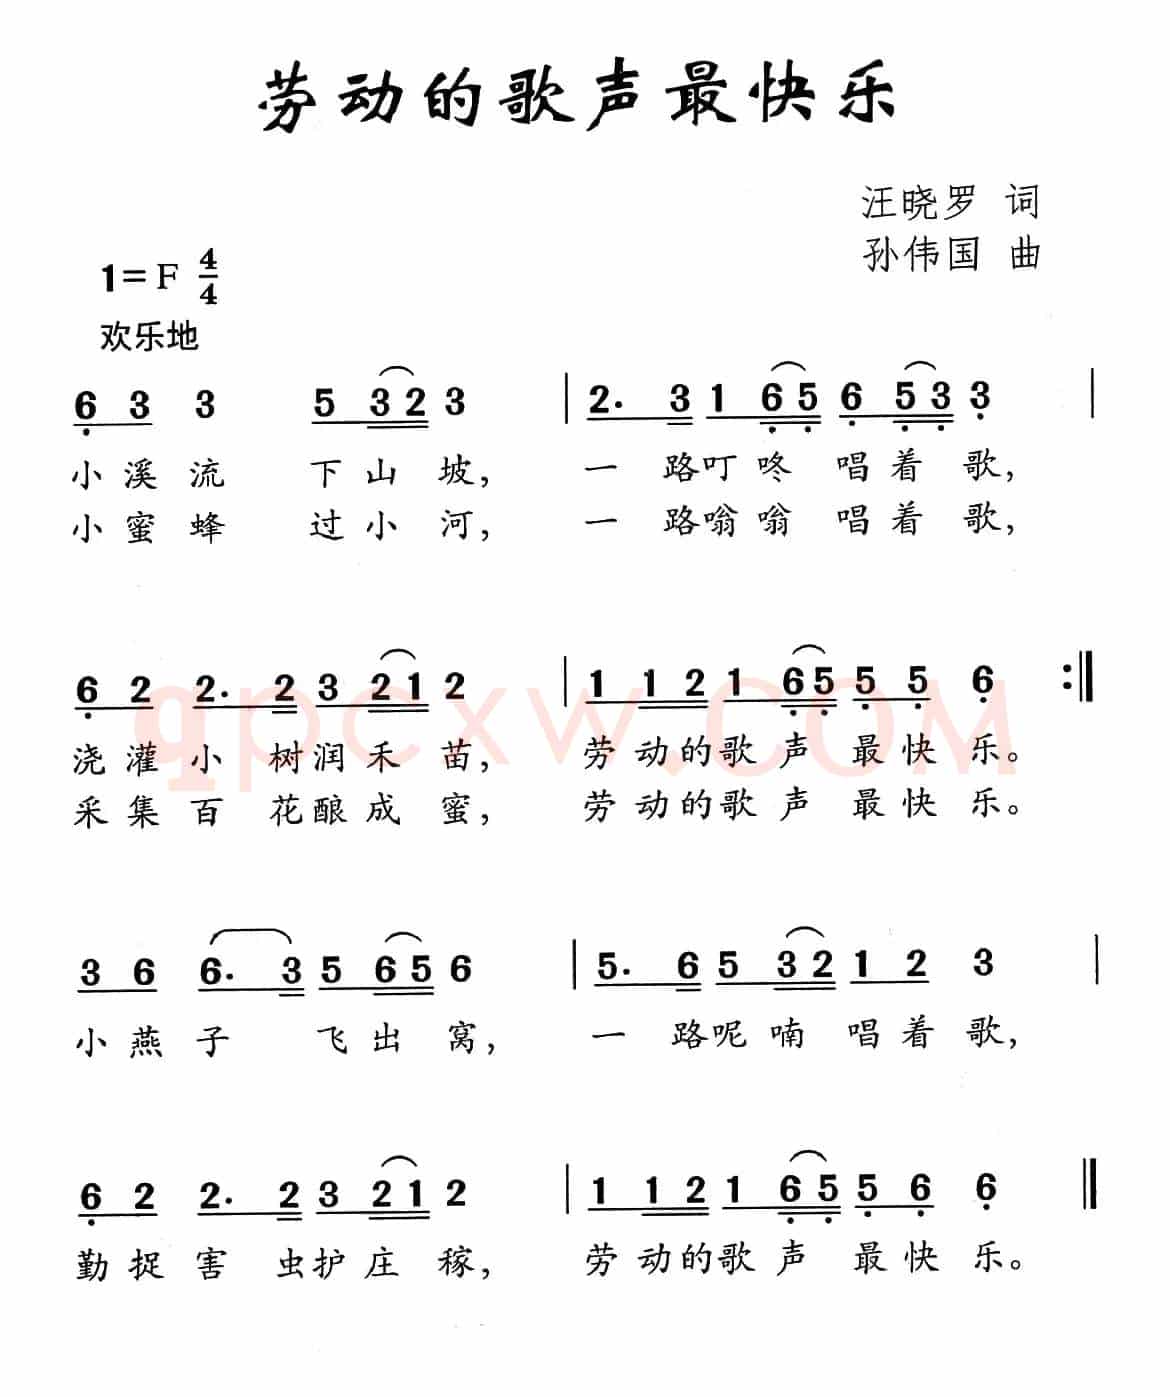 劳动的歌声最快乐
汪晓罗 词
孙伟国 曲
1=F 4/4
欢乐地
6 3 3 5 3 2 3 | 2. 3 1 6 5 6 5 3 3 |
小溪流 下山坡, 一 路叮咚 唱着歌,
小蜜蜂 过小河, 一 路嗡嗡 唱着歌,
6 2 2. 2 3 2 1 2 | 1 1 2 1 6 5 5 5 6 :‖
浇灌小 树润禾苗, 劳动的歌声 最快乐。
采集百 花酿成蜜, 劳动的歌声 最快乐。
qpcxw.COM
3 6 6. 3 5 6 5 6 | 5. 6 5 3 2 1 2 3 |
小燕子 飞出窝, 一 路呢喃 唱着歌,
6 2 2. 2 3 2 1 2 | 1 1 2 1 6 5 5 6 6 ‖
勤捉害 虫护庄稼, 劳动的歌声 最快乐。